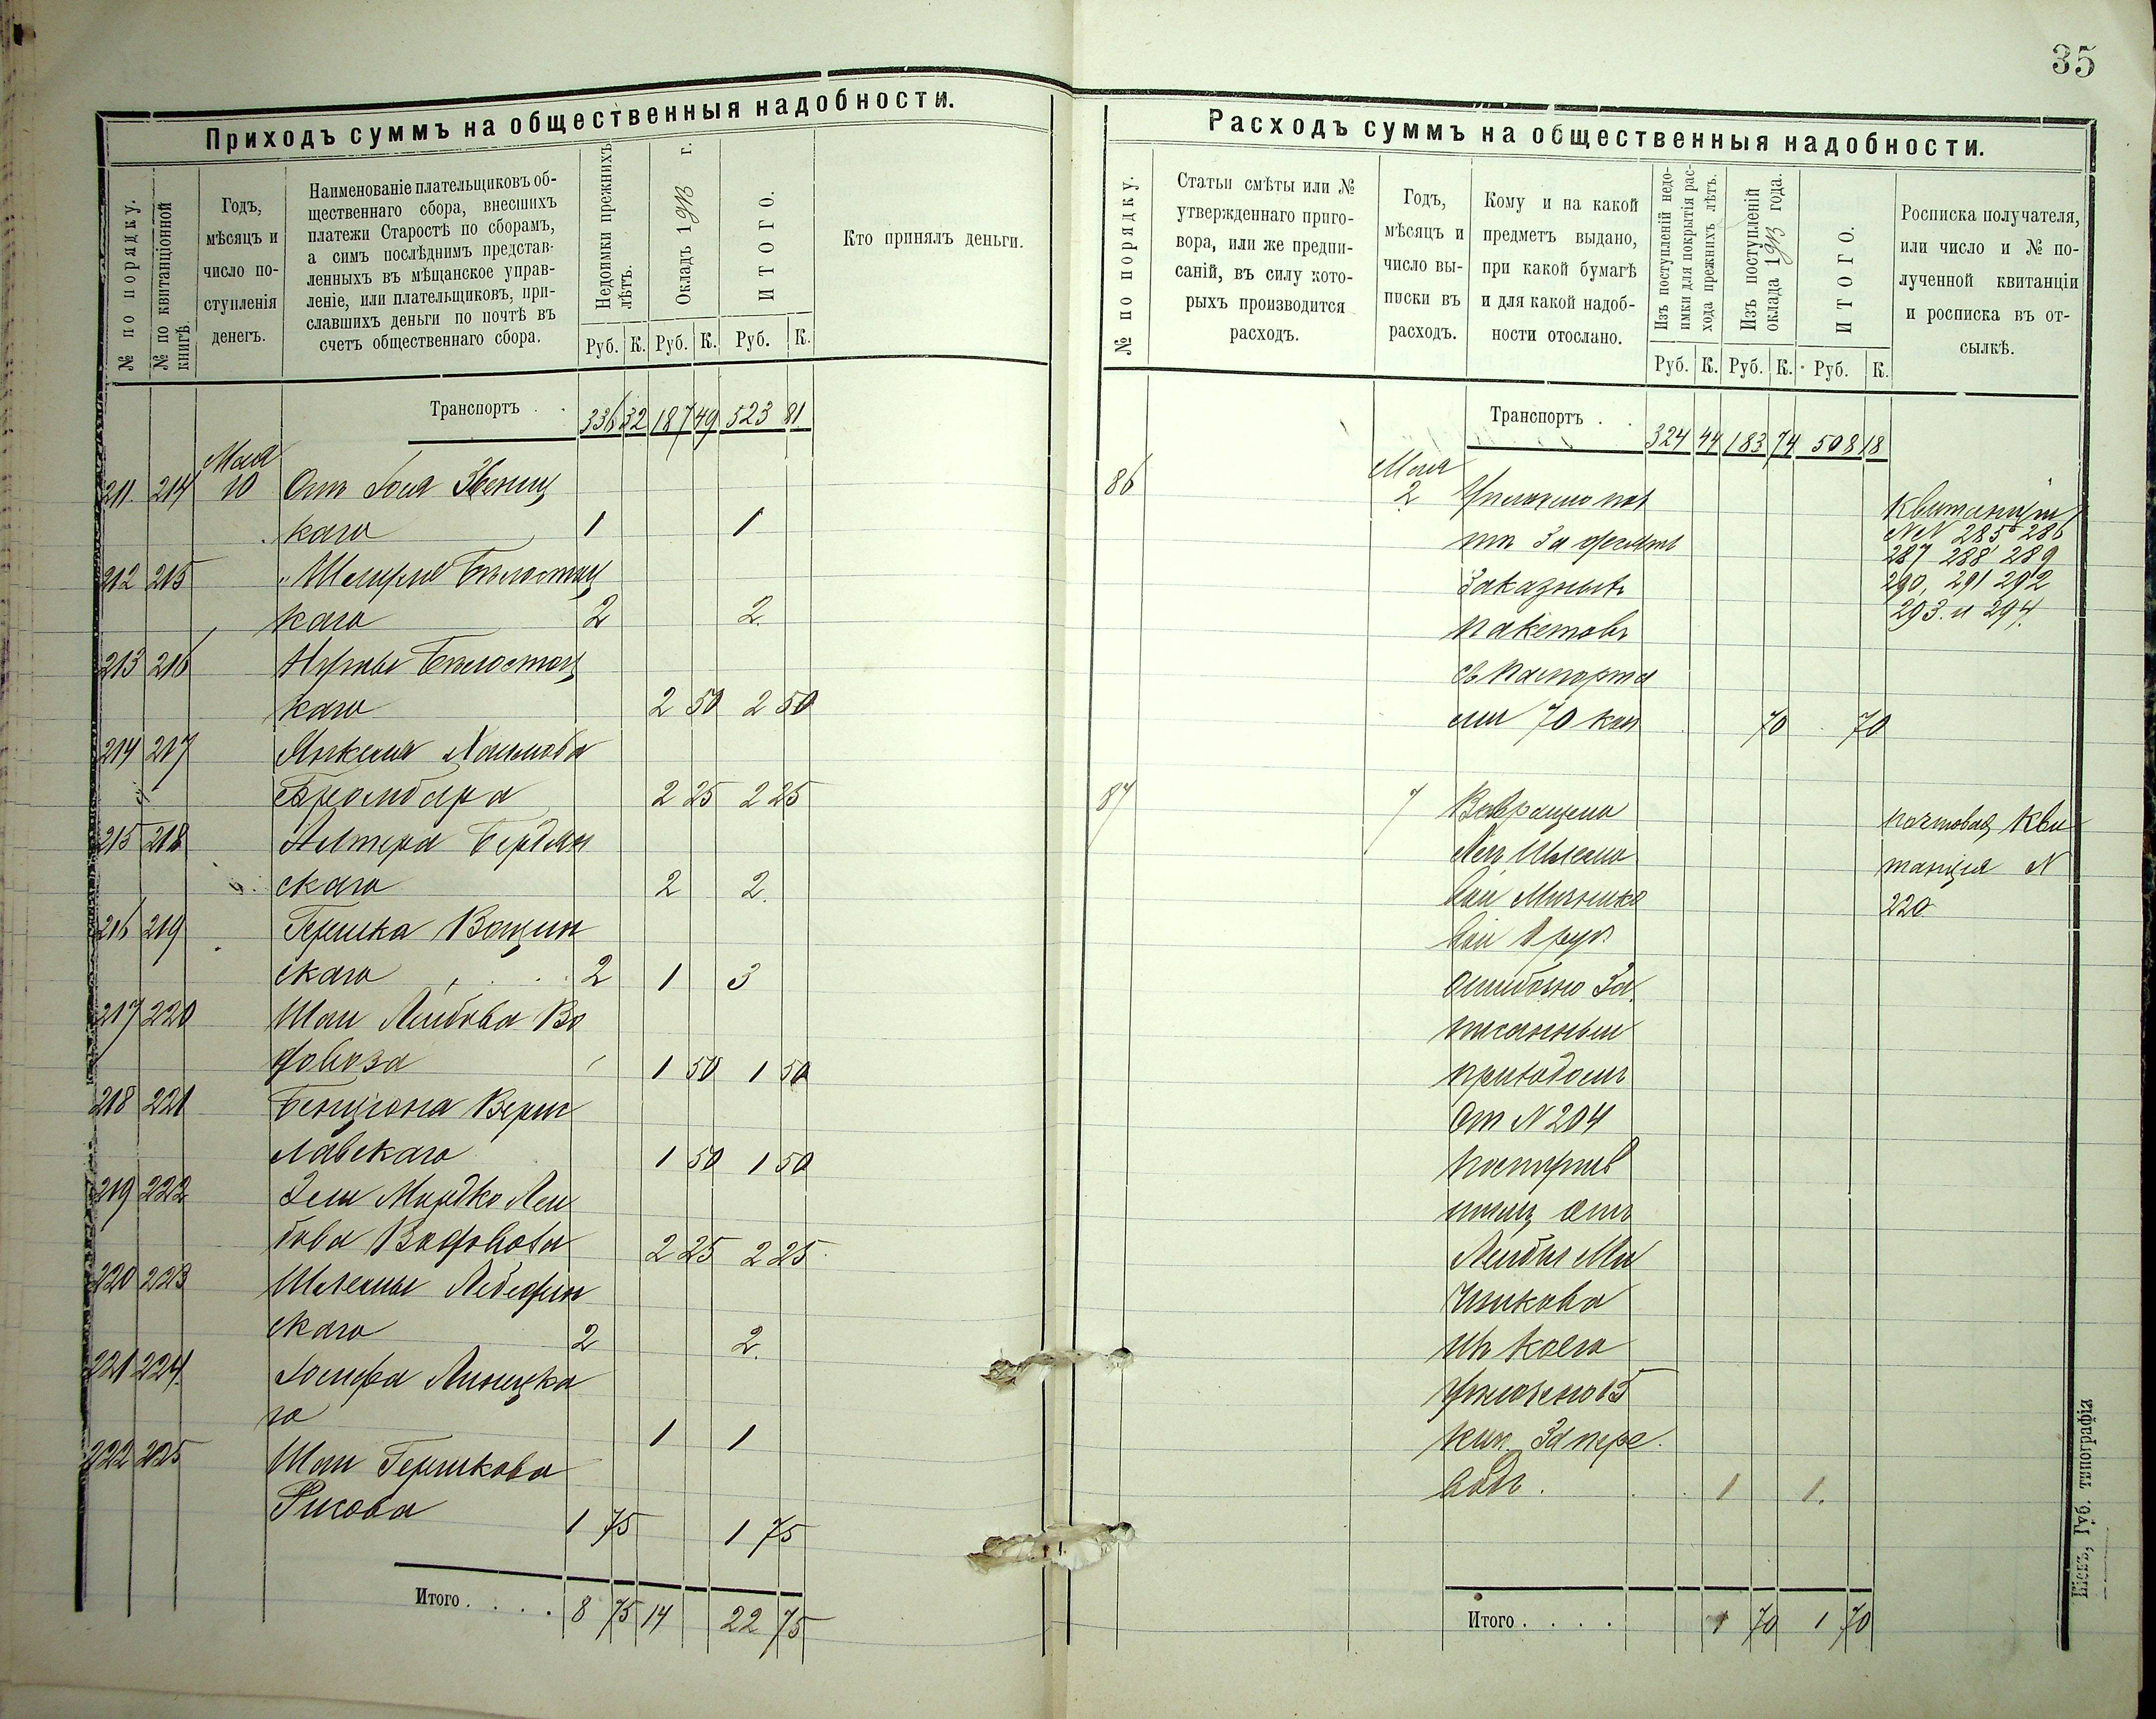 35
Приходъ суммъ на общественныя надобности.
№ по порядку.
№ по квитанціонной книгѣ.
Годъ,
мѣсяцъ и
число по-
ступленія
денегъ.
Наименованіе плательщиковъ об-
щественнаго сбора, внесшихъ
платежи Старостѣ по сборамъ,
а симъ послѣднимъ представ-
ленныхъ въ мѣщанское управ-
леніе, или плательщиковъ, при-
славшихъ деньги по почтѣ въ
счетъ общественнаго сбора.
Недоимки прежнихъ лѣтъ.
Окладъ 1913 г.
ИТОГО.
Кто принялъ деньги.
Руб. К. Руб. К. Руб. К.
Транспортъ . . 336 32 187 49 523 81
Мая
211. 214 10 Отъ
каго 1 1
212 215 Белостоц
каго 2 2.
213 216 Белостоц
каго 2 50 2 50
214 217 Янкеля Хаимова
Бромберга 2 25 2 25
215 218 Алтера Бердян
скаго 2 2.
216 219 Гершка Вощин
скаго 2 1 3
217 220 Шаи Лейбова Во
довоза 1 50 1 50
218 221 Бенціона Верш
лавскаго 1 50 1 50
219 222 Мордко Лей
бова Водовоза 2 25 2 25
220 223 Шлемы Лебедин
скаго 2 2.
221 224. Іосифа Линецка
го 1 1
222 225 Шаи Гершкова
Рисова 1 75 1 75
Итого . . . . 8 75 14 22 75
Расходъ суммъ на общественныя надобности.
№ по порядку.
Статьи смѣты или №
утвержденнаго приго-
вора, или же предпи-
саній, въ силу кото-
рыхъ производится
расходъ.
Годъ,
мѣсяцъ и
число вы-
писки въ
расходъ.
Кому и на какой
предметъ выдано,
при какой бумагѣ
и для какой надоб-
ности отослано.
Изъ поступленій недо-
имки для покрытія рас-
хода прежнихъ лѣтъ.
Изъ поступленій
оклада 1913 года.
ИТОГО.
Росписка получателя,
или число и № по-
лученной квитанціи
и росписка въ от-
сылкѣ.
Руб. К. Руб. К. Руб. К.
Транспортъ . . 324 44 183 74 508 18
Мая
86 2 Уплочено поч
тѣ За десять
Заказныхъ
пакетовъ
съ паспорта
ми 70 коп 70 70
Квитанціи
NN 285 286
287 288 289
290, 291 292
293. и 294.
87 7 Возвращено
вой Мичнико
вой 1 руб.
ошибочно За
писанный
приходомъ
Ст N 204
поступив
шихъ отъ
Лейбы Ми
чникова
изъ коего
уплочено 15
коп. За пере
водъ . 1 1.
почтовая Кви
танція N
220
Итого . . . . 1 70 1 70
Кіевъ, Губ. типографія